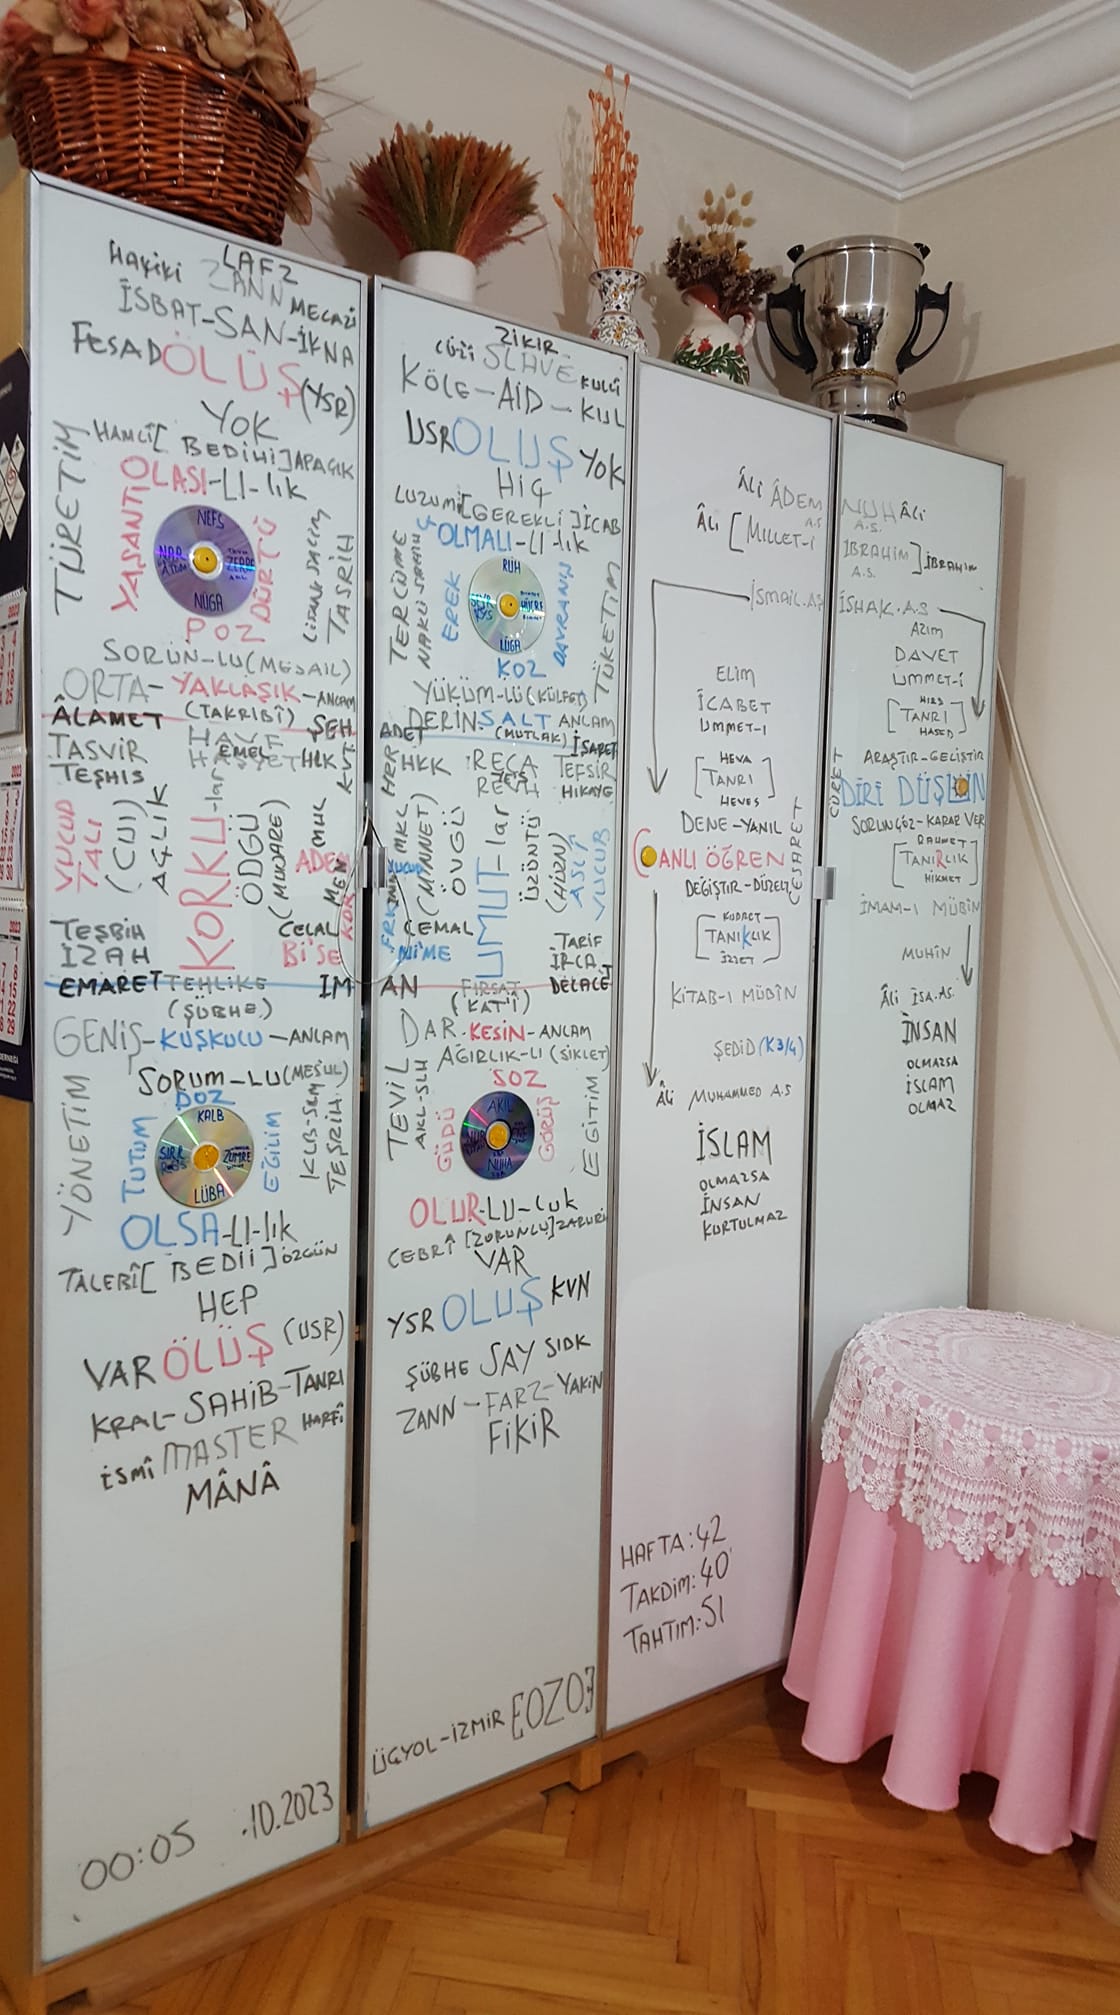 LAFZ
Hakiki ZANN MECAZİ
İSBAT-SAN-İKNA
FESAD ÖLÜŞ (YSR)
YOK
HAMLÎ [BEDİHİ] APAÇIK
OLASI-LI-lık
TÜRETİM
YAŞANTI
NEFS
NÜGA
DÜRTÜ
TASRİH
POZ
SORUN-LU (MESAİL)
ORTA-YAKLAŞIK-ANLAM
(TAKRİBÎ)
ÂLAMET
ŞEH
TASVİR
TEŞHIS
EMEL
HLK
VUCUD
TALI
AÇLIK
KORKU-lar
ÖDGÜ
(MÜKARE)
ADEM
CELAL
TEŞBİH
İZAH
BİSE
EMARET TEHLİKE IM
(ŞÜBHE)
GENİŞ-KUŞKUCU-ANLAM
SORUM-LU (MESUL)
DOZ
YÖNETİM
TUTUM
KALB
SIRR
ZÜMRE
LÜBA
EĞİLİM
TEŞRİH
OLSA-LI-lık
TALEBÎ [BEDİİ] ÖZGÜN
HEP
VAR ÖLÜŞ (USR)
KRAL-SAHİB-TANRI
İSMÎ MASTER HARFÎ
MÂNÂ
00:05 .10.2023
ZİKİR
CÜZİ SLAVE KULLÎ
KÖLE-AİD-KUL
USR OLUŞ YOK
HİÇ
LUZUMİ [GEREKLİ] İCAB
OLMALI-LI-lık
TERCÜME
EREK
RUH
HÜCRE
LÜGA
DAVRANIŞ
TÜKETİM
KOZ
YÜKÜM-LÜ (KÜLFET)
DERİN SALT ANLAM
(MUTLAK)
ADET
İŞARET
HKK
RECA
TEFSİR
HİKAYE
HER
MKL
(MİNNET)
ÖVGÜ
UMUT-lar
ÜZÜNTÜ
(HÜZN)
ASLÎ
VUCUB
CEMAL
NİME
TARİF
İRCA
AN FIRSAT DELALET
(KAT'Î)
DAR-KESİN-ANLAM
AĞIRLIK-LI (SİKLET)
SOZ
TEVİL
AKL-SLH
GÜDÜ
AKIL
NUHA
GÖRÜŞ
EĞİTİM
OLUR-LU-luk
CEBRÎ [ZORUNLU] ZARURİ
VAR
YSR OLUŞ KVN
ŞÜBHE SAY SIDK
ZANN-FARZ-YAKİN
FİKİR
ÜÇYOL-İZMİR [EOZOE]
Âli ÂDEM A.S
Âli [MİLLET-İ
İSMAİL.A.S
ELİM
İCABET
UMMET-İ
HEVA
[TANRI]
HEVES
DENE-YANIL
CANLI ÖĞREN
DEĞİŞTİR-DÜZELT
ESARET
KUDRET
[TANIKLIK]
İZZET
KİTAB-I MÜBİN
ŞEDİD (K3/4)
Âli MUHAMMED A.S
İSLAM
OLMAZSA
İNSAN
KURTULMAZ
HAFTA:42
TAKDİM:40
TAHTIM:51
NUH Âli
A.S.
İBRAHİM ] İBRAHİM
A.S.
İSHAK.A.S
AZIM
DAVET
UMMET-İ
HIRS
[TANRI]
HASED
ARAŞTIR-GELİŞTİR
CÜRET
DİRİ DÜŞÜN
SORUN ÇÖZ-KARAR VER
RAHMET
[TANIRLIK]
HİKMET
İMAM-I MÜBİN
MUHİN
Âli İSA.AS.
İNSAN
OLMAZSA
İSLAM
OLMAZ